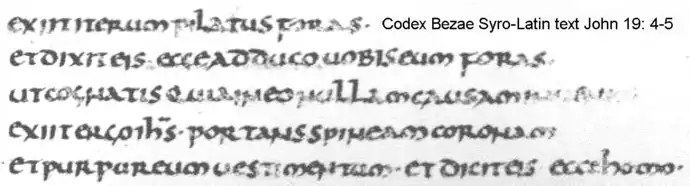 exiit iterum pilatus foras · Codex Bezae Syro-Latin text John 19: 4-5
et dixit eis · ecce adduco uobis eum foras
ut cognatis quia in eo nullam causam
exiit ergo ih̅s · portans spineam coronam
et purpureum uestimentum · et dicit eis ecce homo ·